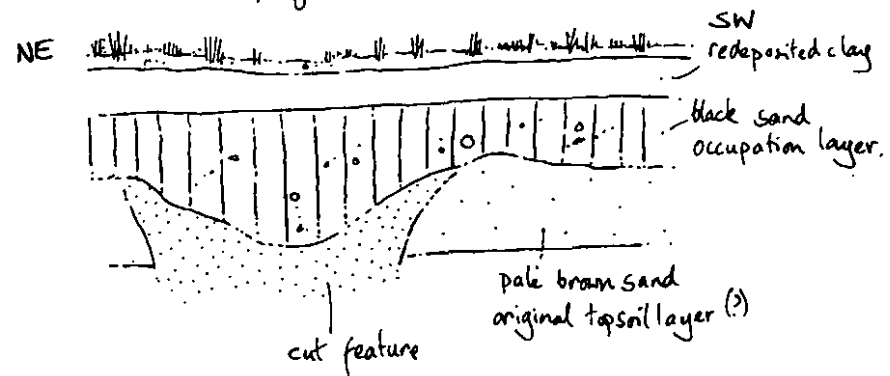 NE
SW
redeposited clay
black sand
occupation layer.
pale brown sand
original topsoil layer (?)
cut feature